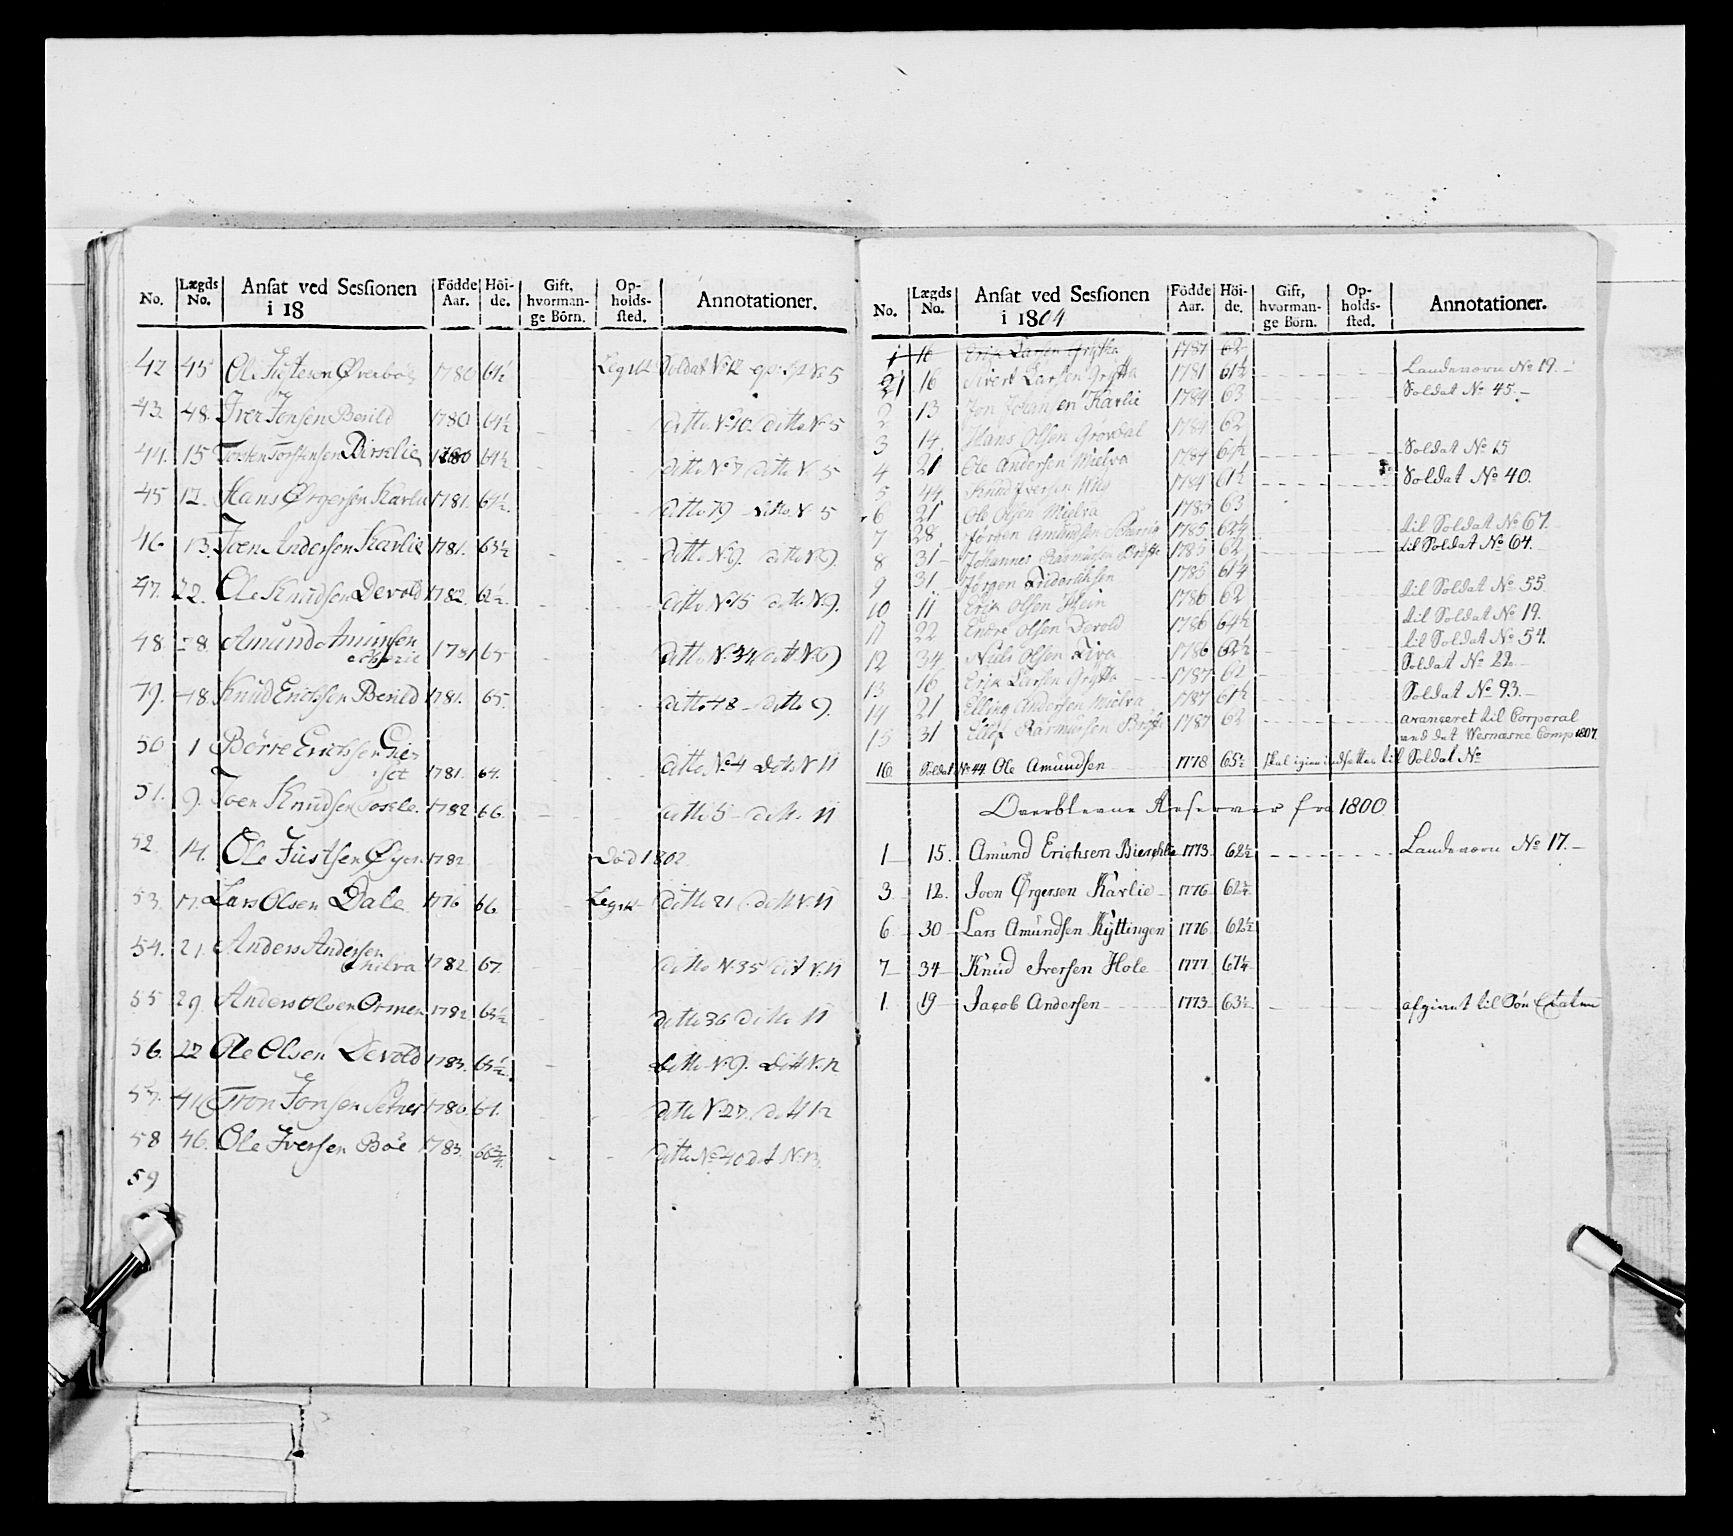 No. Lægds No. Ansat ved Sessionen i 18 Födde Aar. Höide. Gift, hvormange Börn. Opholdssted. Annotationer.
42 45 Ole 1780 61½ Soldat No 12
43. 48. Iver Jonsen Berild 1780 61½ ditto No 10. ditto No 5
44. 15 Torsten Torstensen Birkelie 1780 61½ ditto No 7 ditto No 5
45 12. Hans Ørgersen Karlie 1781. 61½. ditto 79 ditto No 5
46 13. Joen Andersen Karlie 1781. 63½ ditto No 9. ditto No 9.
47. 22. Ole Knudsen Devold 1782. 62½. ditto No 15 ditto No 9.
48 28. Amund 1781 65 ditto No 34 ditto No 9
79. 48. Knud Erichsen Berild 1781. 65. ditto 48 ditto 9.
50 1 Børre Erichsen 1781. 64. ditto No 4 ditto No 11
51. 9. Joen Knudsen 1782 66. ditto 5 ditto 11
52. 14. Ole Justsen Øyen 1782 Död 1802
53. 17. Lars Olsen Dale 1776 66 ditto 21 ditto No 11
54. 21. Anders Andersen
Mielva 1782 67. ditto No 35 ditto No 11
55 29. Anders Olsen Ormen 1782 63½ ditto 36 ditto 11
56. 22 Ole Olsen Devold 1783. 63½. ditto No 9. ditto No 12
57. 41 Tron Jonsen 1780. 61. ditto No 27. ditto 12
58 46. Ole Iversen Böe 1783. 66¾. ditto No 40 dit No 13.
59
No. Lægds No. Ansat ved Sessionen i 1804 Födde Aar. Höide. Gift, hvormange Börn. Opholdssted. Annotationer.
1 16 Erik Larsen Grytta 1787 62
21 16 Sivert Larsen Grytta 1781 61½ Landeværn No 19.
2 13 Jon Johansen Karlie 1784 63 Soldat No 45.
3 14 Hans Olsen Grovdal 1784 62
4 21 Ole Andersen Mielva 1784 61½ Soldat No 15
5 44 Knud Iversen 1784 61½ Soldat No 40.
6 21 Ole Olsen Mielva 1785 63
7 28. Jørgen Amundsen 1785. 62¼ til Soldat No 67.
8 31 Johannes Rasmusen 1785 62 til Soldat No 64.
9 31 Jörgen Diderichsen 1785 61¼
10 11 Erik Olsen Hein 1786 62 til Soldat No 55.
11 22 Endre Olsen Devold 1786 64½ til Soldat No 19.
12 34 Niels Olsen 1786 62½ til Soldat No 54.
13 16 Erik Larsen Grytta 1787 62 Soldat No 22
14 21 Elling Andersen Mielva 1787 61½ Soldat No 93.
15 31 Ellef Rasmussen 1787 62 avanceret til Corporal
ved det Wesnæsne Comp 1807.
16 Soldat No 44 Ole Amundsen 1778 65½ skal igien indsættes til Soldat No
Overblevne Reserver fra 1800
1 15. Amund Erichsen Bierchlie 1773. 62½ Landeværn No 17.
3 12. Joen Ørgersen Karlie 1776 62¾
6 30 Lars Amundsen Kyttingen 1776. 62½
7 34 Knud Iversen Hole 1777 67¼
1. 19 Jacob Andersen 1773 63½ afgivet til Søe Etaten